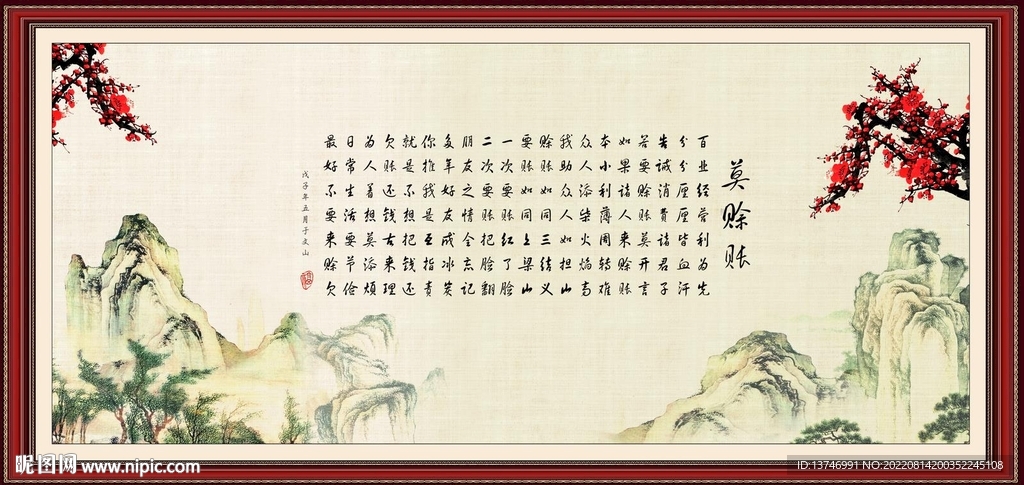 莫赊账
百业经营利为先
分分厘厘皆血汗
告诫消費诸君子
若要赊账莫开言
如果诸人来赊账
本小利薄周转难
众人添柴火焰高
我助众人如担山
赊账如同三结义
要账如同上梁山
一次要账红了脸
二次要账把脸翻
朋友之情全忘记
多年好友成冰炭
你推我是互指责
就是不想把钱还
欠账还钱古来理
为人着想莫添烦
日常生活要节俭
最好不要来赊欠
戊子年五月于文山
昵图网 www.nipic.com
ID:13746991 NO:20220814200352245108